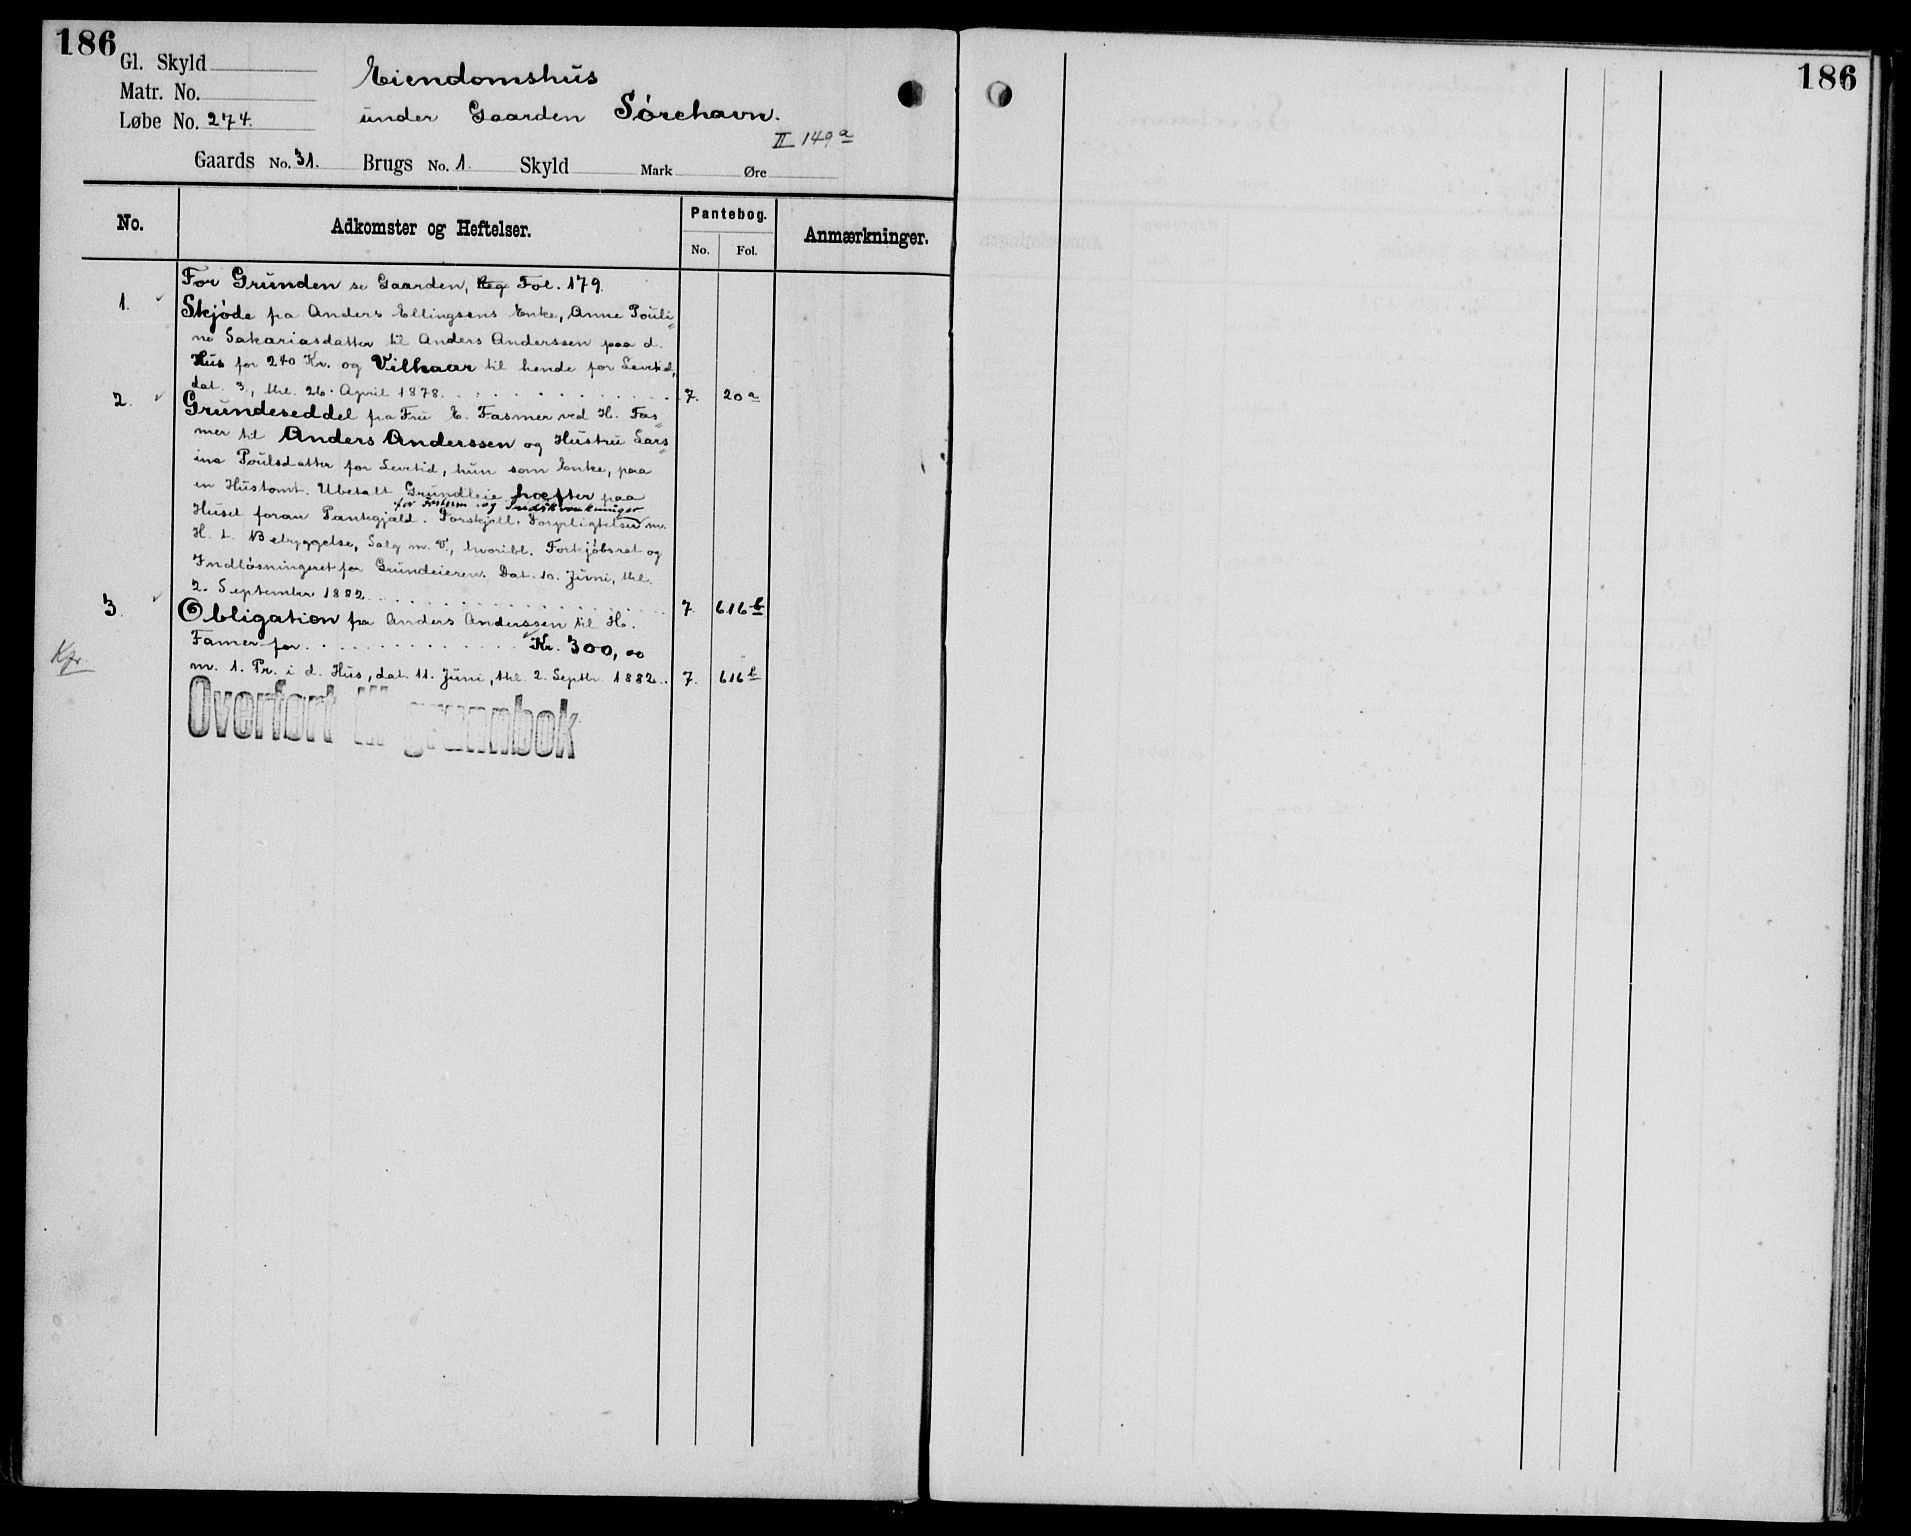 186
Gl. Skyld
Matr. No.
Løbe No. 274.
Eiendomshus
under Gaarden Sørehavn.
II 149a
Gaards No. 31. Brugs No. 1. Skyld Mark Øre
No. Adkomster og Heftelser. Pantebog. Anmærkninger.
No. Fol.
For Grunden se Gaarden, Reg Fol. 179.
1. Skjøde fra Anders Ellingsens Enke, Anne Pouli=
ne Sakariasdatter til Anders Anderssen paa d.
Hus for 240 Kr. og Vilkaar til hende for Levetid,
dat. 3, thl. 26. April 1878. 7. 20a
2. Grundeseddel fra Fru E. Fasmer ved H. Fas=
mer til Anders Anderssen og Hustru Lars=
ine Poulsdatter for Levetid, hun som Enke, paa
en Hustomt. Ubetalt Grundleie hæfter paa
Huset foran Pantegjæld. Forskjell. Forpligtelser m.
H. t. Bebyggelse, Salg m. V., hvoribl. Forkjøbsret og
Indløsningsret for Grundeieren. Dat. 10. Juni, thl.
2. September 1882 7. 616b
3. Obligation fra Anders Anderssen til H.
Famer for Kr. 300,00
m. 1. Pr. i d. Hus, dat. 11. Juni, thl. 2. Septbr. 1882. 7. 616b
Overført til grunnbok
186